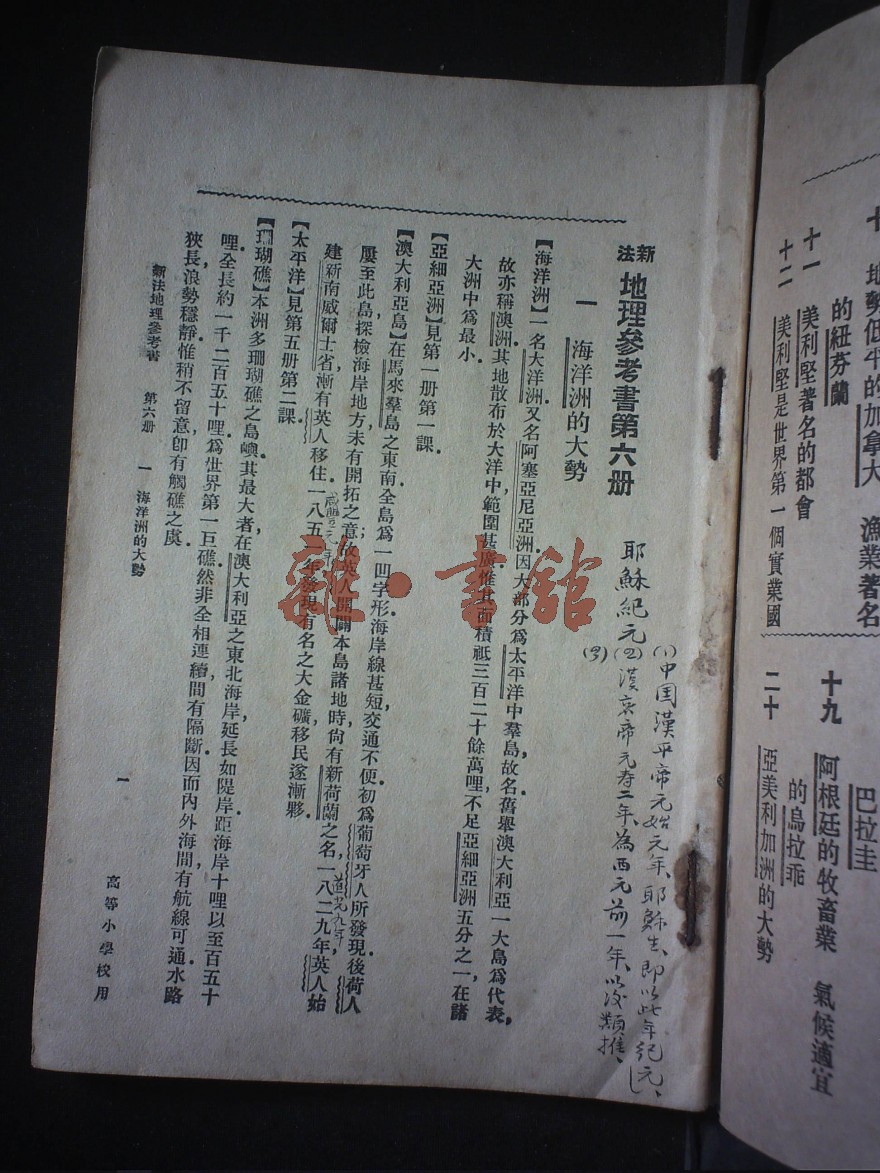 十 地勢低平的加拿大 漁業著名
的紐芬蘭
十一 美利堅著名的都會
十二 美利堅是世界第一個實業國
巴拉圭
十九 阿根廷的牧畜業 氣候適宜
的烏拉乖
二十 亞美利加洲的大勢
新法 地理參考書第六册
一 海洋洲的大勢
耶穌紀元
(1)中国漢平帝元始元年、耶穌生、即以此年紀元、
(2)漢哀帝元寿二年、為西元前一年、以次類推、
(3)
【海洋洲】一名大洋洲又名阿塞亞尼亞洲因大部分爲太平洋中羣島故名舊舉澳大利亞一大島爲代表，
故亦稱澳洲其地散布於大洋中範圍甚廣惟其面積祇三百二十餘萬哩不足亞細亞洲五分之一，在諸
大洲中爲最小．
【亞細亞洲】見第一册第一課．
【澳大利亞島】在馬來羣島之東南全島爲一凹字形海岸線甚短交通不便初爲葡萄牙人所發現．後荷人
屢至此島探檢海岸地方未有開拓之意；故英人開闢本島諸地時尙有新荷蘭之名．一八二九年，英人始
道光九年
建新南威爾士省漸有英人移住．一八五一年發現有名之大金礦移民遂漸夥．
咸豐元年
【太平洋】見第五册第二課．
【珊瑚礁】本洲多珊瑚礁之島嶼．其最大者在澳大利亞之東北海岸，延長如隄岸距海岸十哩以至百五十
哩．全長約一千二百五十哩，爲世界第一巨礁．然非全相連續，間有隔斷因而內外海間有航線可通水路
狹長，浪勢穩靜惟稍不留意，卽有觸礁之虞．
新法地理參考書 第六册 一 海洋洲的大勢 一 高等小學校用
龍·書館